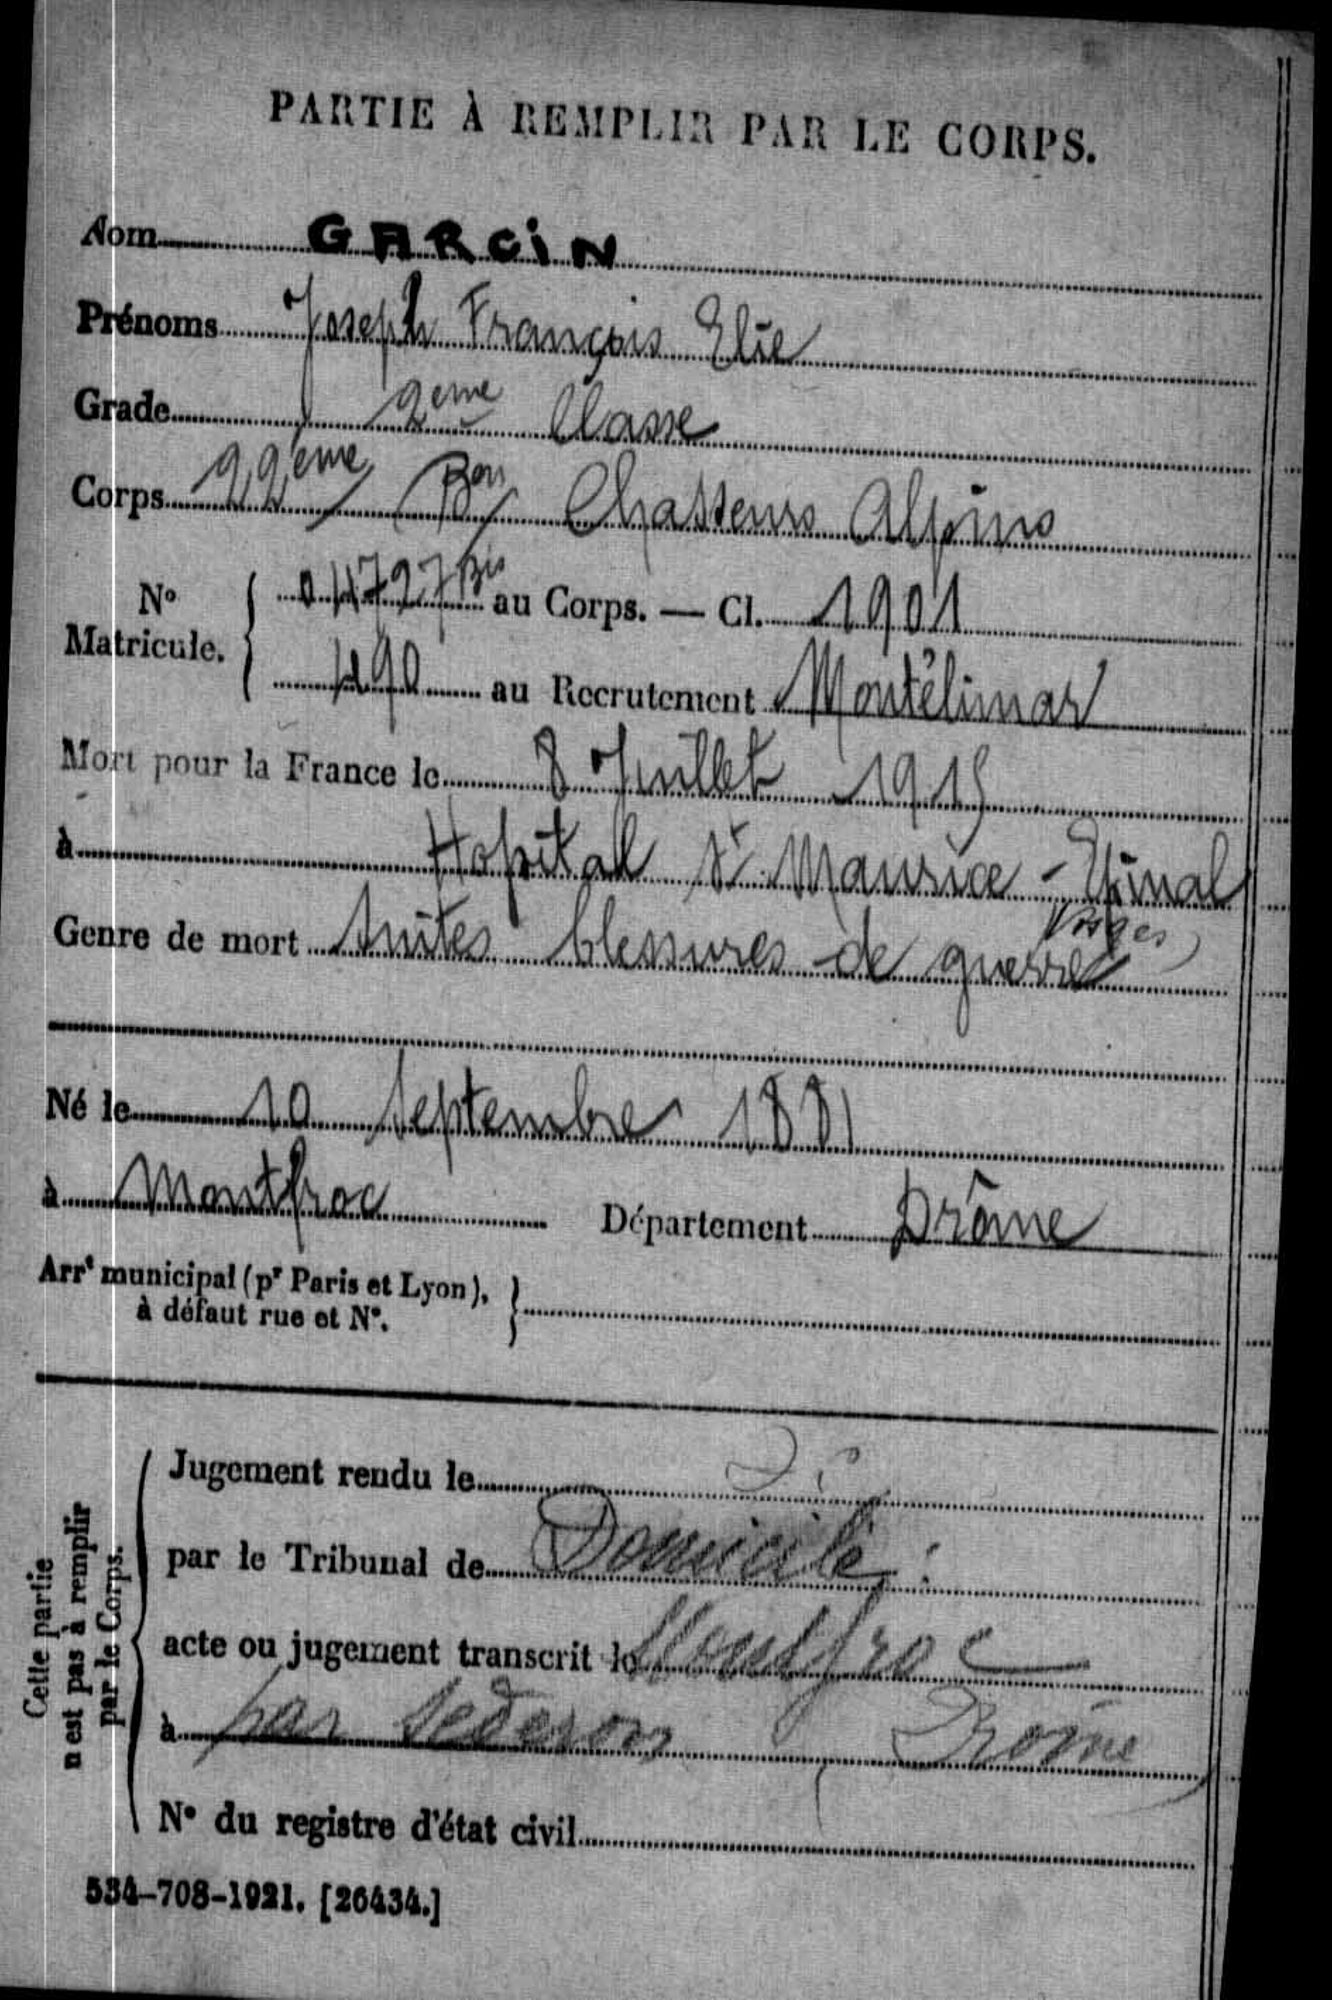 PARTIE À REMPLIR PAR LE CORPS.
Nom GARCIN
Prénoms Joseph François Elie
Grade 2eme Classe
Corps 22eme Bon Chasseurs Alpins
No Matricule. 04727 Bis au Corps. — Cl. 1901
490 au Recrutement Montélimar
Mort pour la France le 8 Juillet 1915
à Hopital St Maurice - Epinal
Vosges)
Genre de mort suites blessures de guerre
Né le 10 Septembre 1881
à Montfroc Département Drôme
Arrt municipal (pr Paris et Lyon),
à défaut rue et No.
Cette partie
n'est pas à remplir
par le Corps.
Jugement rendu le
par le Tribunal de Domicile :
acte ou jugement transcrit le Montfroc
à par Sederon Drome
No du registre d'état civil
534-708-1921. [26434.]